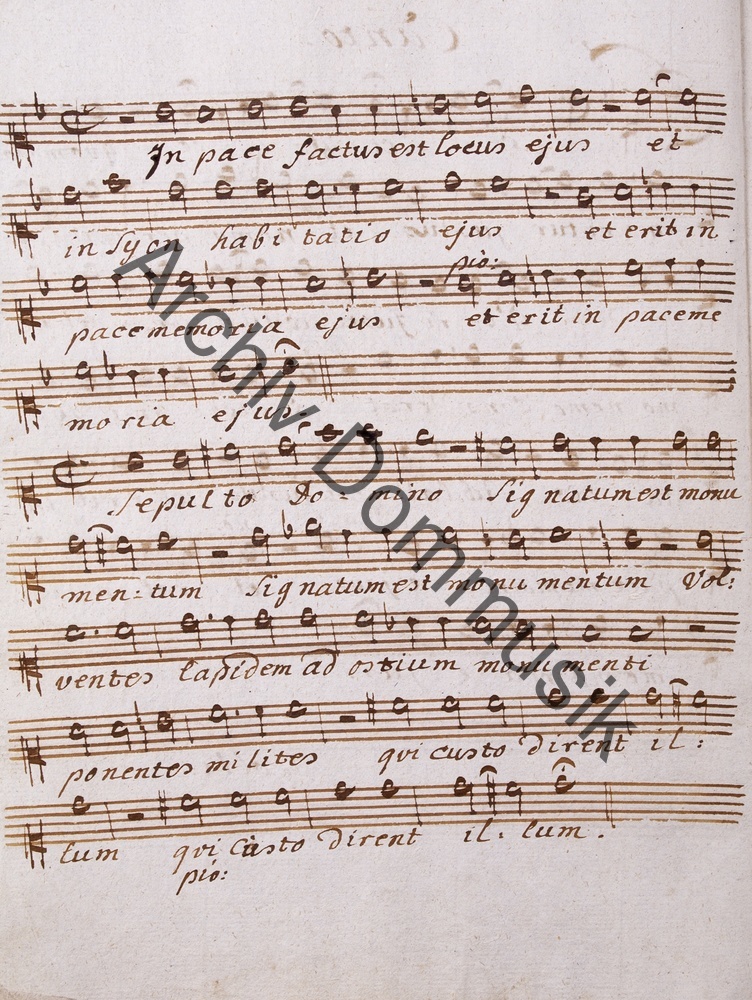 In pace factus est locus ejus et
in Syon habi tatio ejus et erit in
pio:
pace memoria ejus et erit in pace me
moria ejus.
Sepulto Do - mino Sig natum est monu
men - tum Sig natum est monu mentum Vol:
ventes lapidem ad ostium monumenti
ponentes milites qvi custo dirent il:
lum qvi Custo dirent il: lum.
pio:
Archiv Dommusik